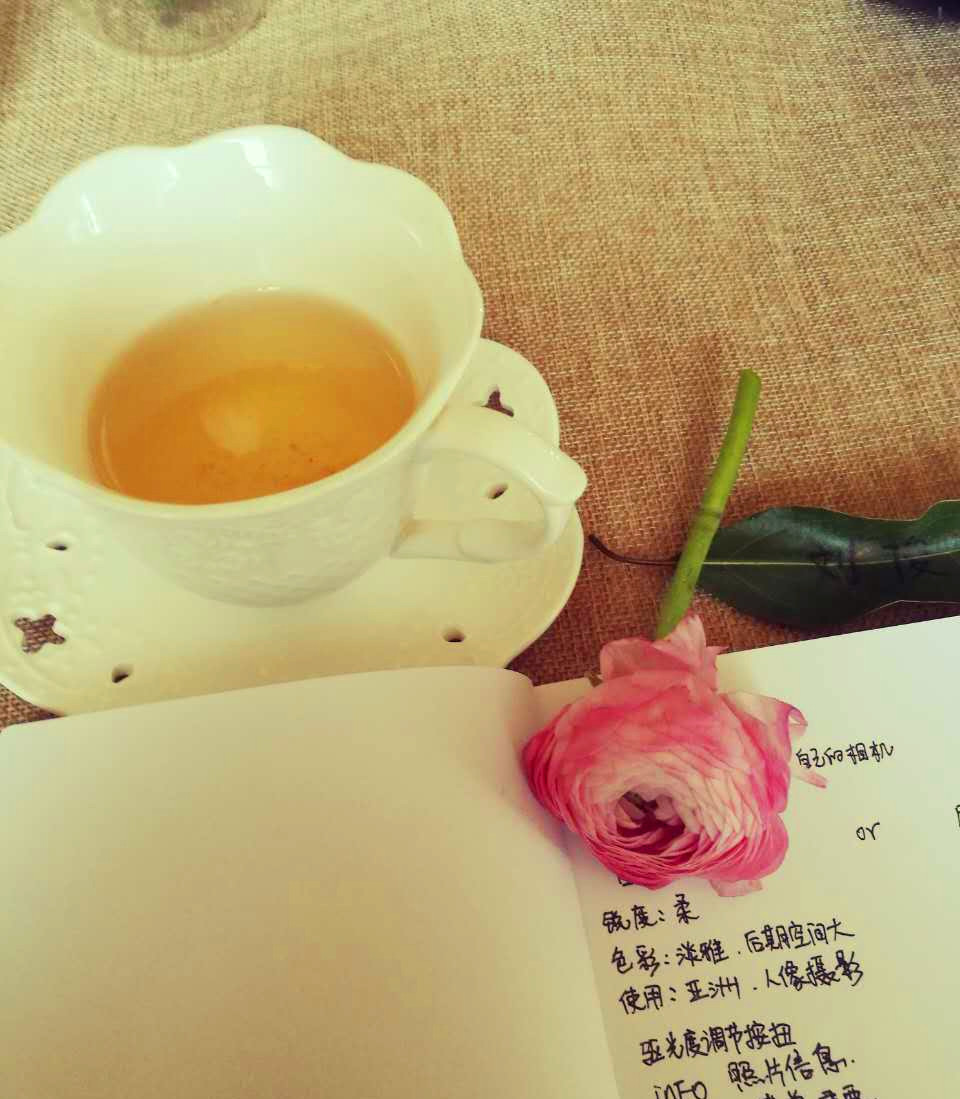 自己的相机
or
锐度：柔
色彩：淡雅．后期空间大
使用：亚洲．人像摄影
亚光度调节按扭
INFO 照片信息．